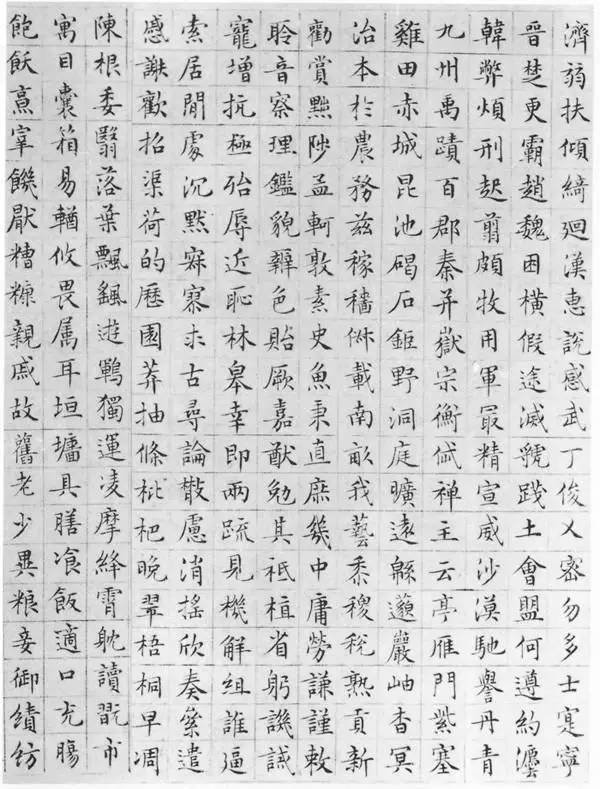 濟弱扶傾綺迴漢惠說感武丁俊乂密勿多士寔寧
晉楚更霸趙魏困橫假途滅虢踐土會盟何遵約灋
韓弊煩刑起翦頗牧用軍冣精宣威沙漠馳譽丹青
九州禹蹟百郡秦并嶽宗衡岱禪主云亭雁門紫塞
雞田赤城昆池碣石鉅野洞庭曠遠緜邈巖岫杳冥
治本於農務茲稼穡俶載南畝我藝黍稷稅熟貢新
勸賞黜陟孟軻敦素史魚秉直庶幾中庸勞謙謹敕
聆音察理鑑貌辨色貽厥嘉猷勉其祗植省躬譏誡
寵增抗極殆辱近恥林皋幸即兩疏見機解組誰逼
索居閒處沉默寂寥求古尋論散慮消搖欣奏累遣
慼謝歡招渠荷的歷園莽抽條枇杷晚翠梧桐早凋
陳根委翳落葉飄颻遊鵾獨運凌摩絳霄耽讀翫市
寓目囊箱易輶攸畏属耳垣墻具膳飡飯適口充腸
飽飫烹宰饑厭糟糠親戚故舊老少異粮妾御績紡